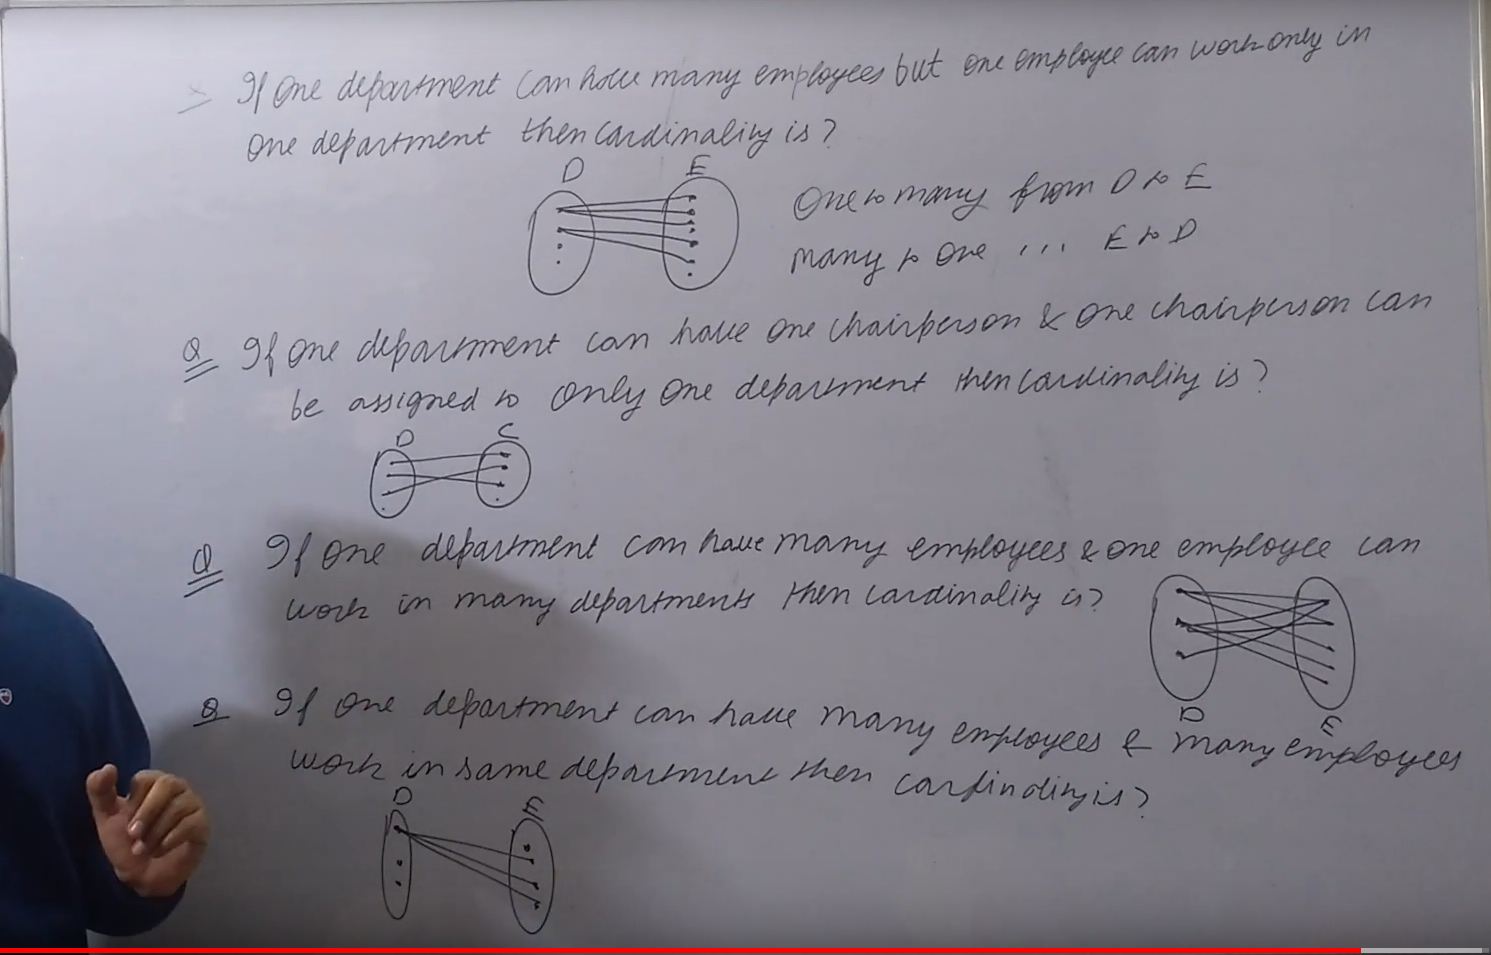 If one department can have many employees but one employee can work only in
one department then cardinality is?
D E
One to many from D to E
many to one ... E to D
Q If one department can have one chairperson & one chairperson can
be assigned to only one department then cardinality is?
D C
Q If one department can have many employees & one employee can
work in many departments then cardinality is?
D E
Q If one department can have many employees & many employees
work in same department then cardinality is?
D E